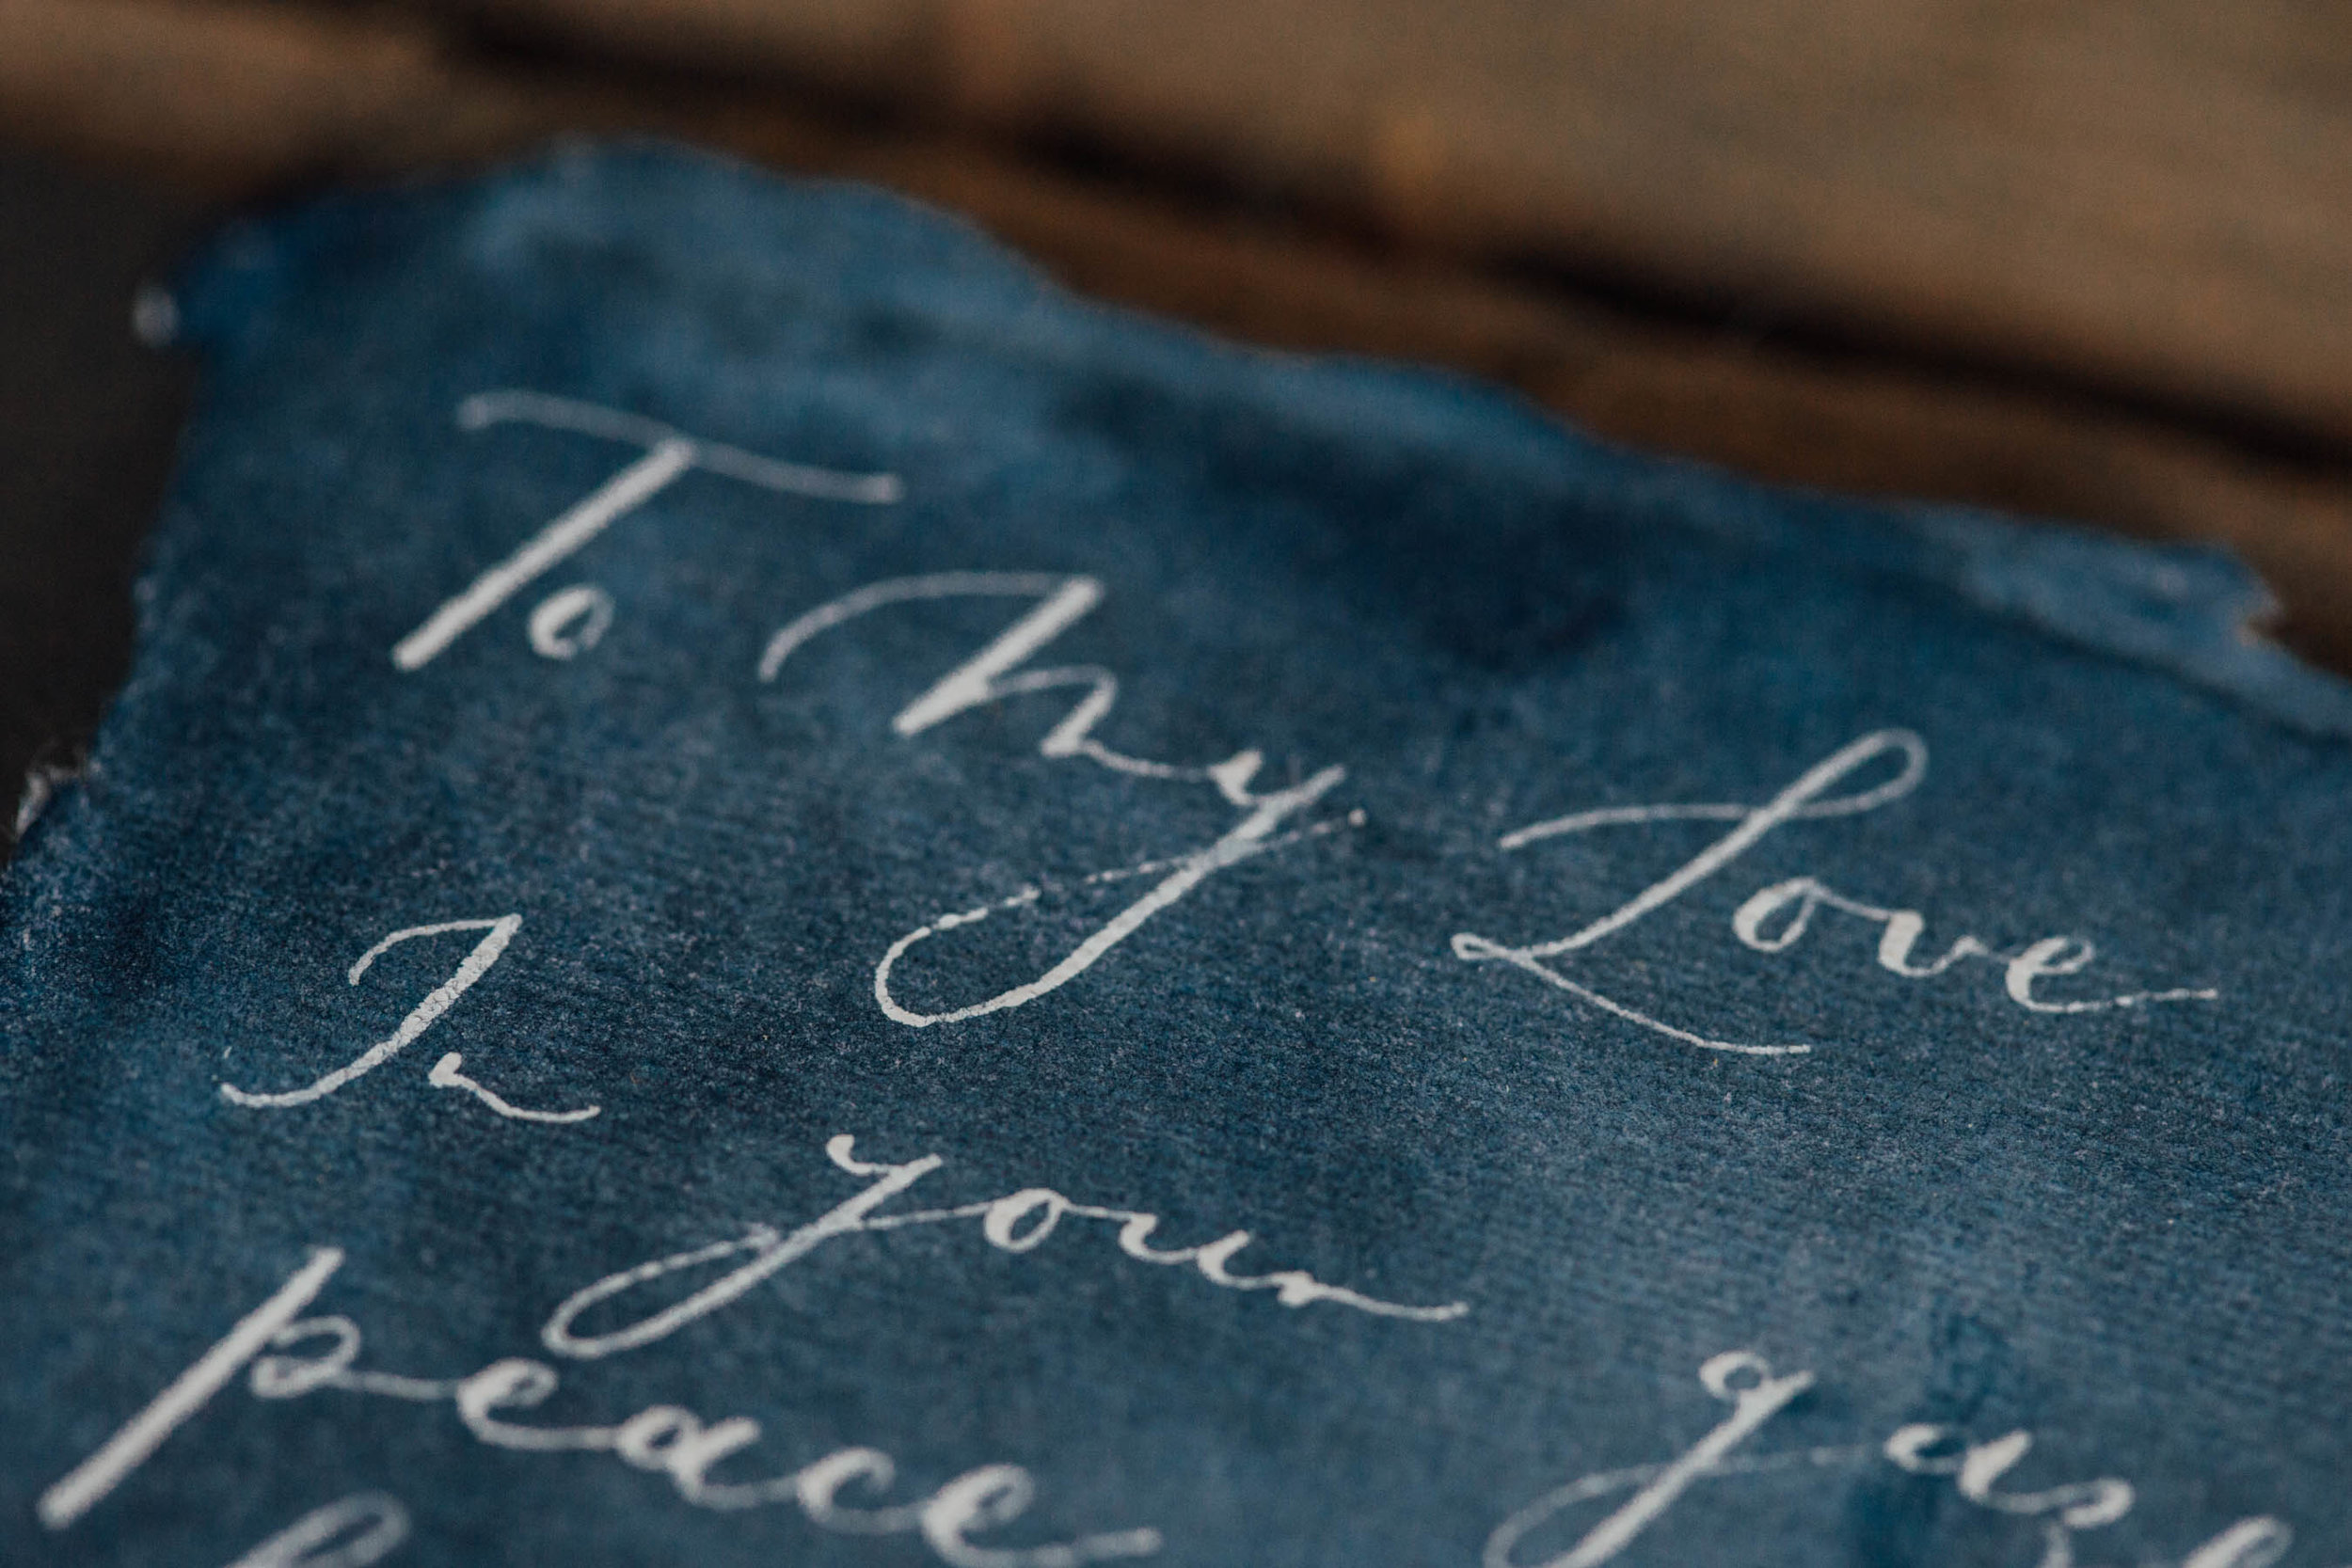 To My Love
In your
peace